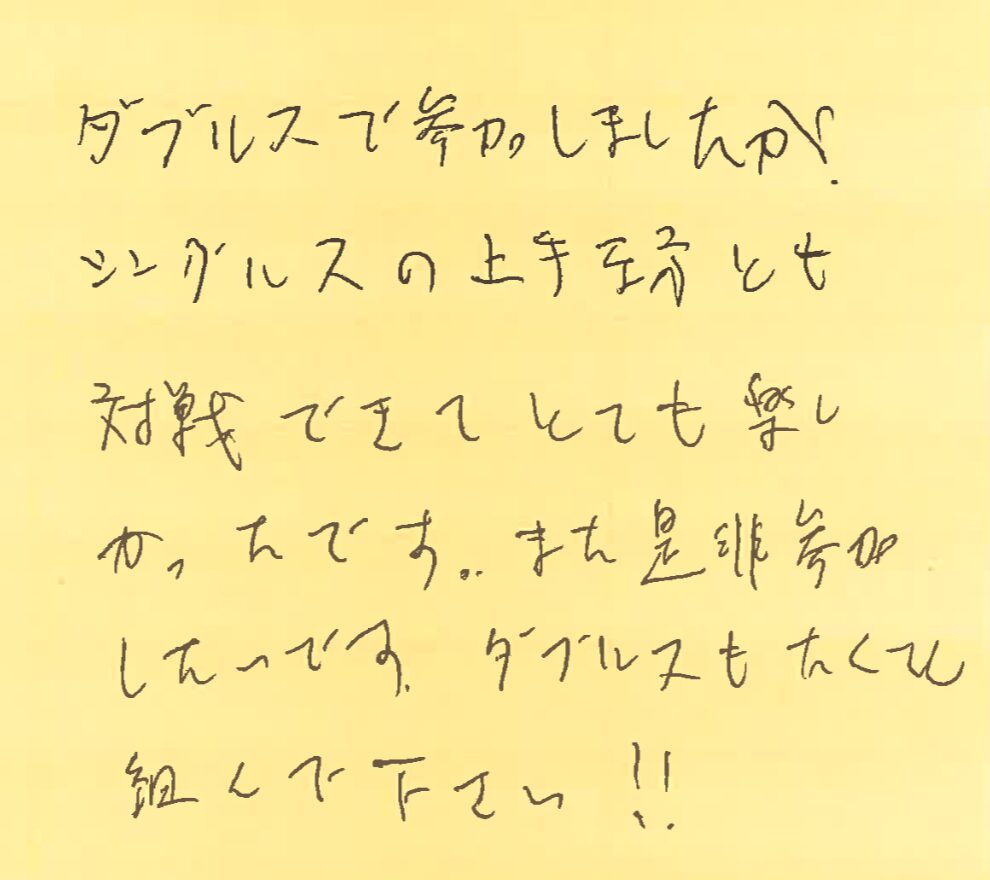 ダブルスで参加しましたが、
シングルスの上手とも
対戦できてとても楽し
かったです。また是非参加
したいです。ダブルスもたくさん
組んで下さい!!